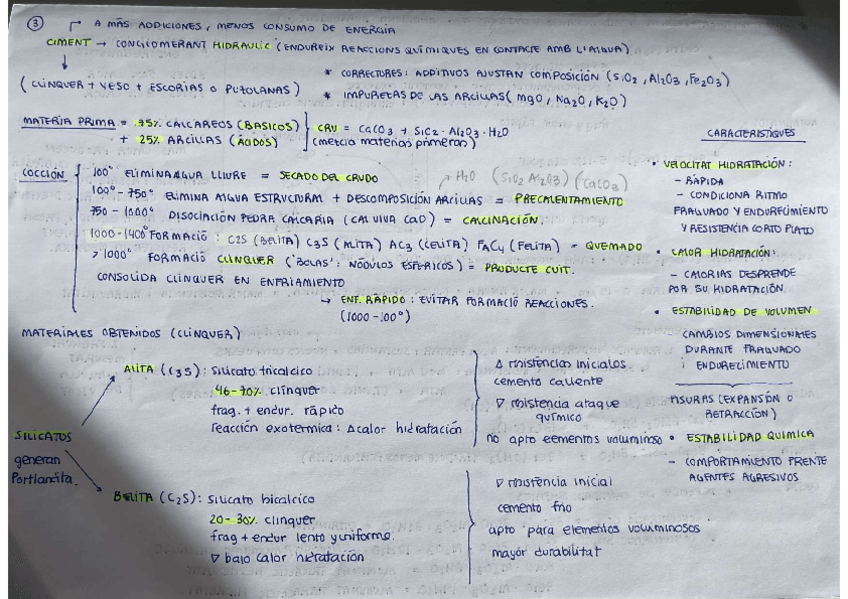 ③ → A MÁS ADDICIONES, MENOS CONSUMO DE ENERGÍA
CIMENT → CONGLOMERANT HIDRAULIC (ENDUREIX REACCIONS QUÍMIQUES EN CONTACTE AMB L'AIGUA)
↓
(CLINQUER + YESO + ESCORIAS O PUZOLANAS)
* CORRECTORES: ADDITIVOS AJUSTAN COMPOSICIÓN (SiO2, Al2O3, Fe2O3)
* IMPUREZAS DE LAS ARCILLAS (MgO, Na2O, K2O)
MATERIA PRIMA = 75% CALCAREOS (BASICOS)
+ 25% ARCILLAS (ÁCIDOS)
CRU = CaCO3 + SiO2 · Al2O3 · H2O
(mezcla materias primeras)
COCCIÓN
100° ELIMINA AIGUA LLIURE = SECADO DEL CRUDO
→ H2O (SiO2 Al2O3) (CaCO3)
100° - 750° ELIMINA AIGUA ESTRUCTURAL + DESCOMPOSICIÓN ARCILLAS = PRECALENTAMIENTO
750 - 1000° DISOCIACIÓN PEDRA CALCARIA (CAL VIVA CaO) = CALCINACIÓN.
1000-1400° FORMACIÓ : C2S (BELITA) C3S (ALITA) AC3 (CELITA) FAC4 (FELITA) = QUEMADO
> 1000° FORMACIÓ CLINQUER ('BOLAS': NÓDULOS ESFERICOS) = PRODUCTE CUIT.
CONSOLIDA CLINQUER EN ENFRIAMIENTO
↳ ENF. RÀPIDO : EVITAR FORMACIÓ REACCIONES.
(1000 - 100°)
MATERIALES OBTENIDOS (CLINQUER)
SILICATOS
generan
Portlandita.
ALITA (C3S): Silicato tricalcico
46-70% clinquer
frag. + endur. rápido
reacción exotermica: Δ calor hidratación
Δ resistencias iniciales
cemento caliente
∇ resistencia ataque
químico
no apto elementos voluminoso
BELITA (C2S): Silicato bicalcico
20-30% clinquer
frag + endur lento y uniforme.
∇ bajo calor hidratación
∇ resistencia inicial
cemento frio
apto para elementos voluminosos
mayor durabilitat
CARACTERISTIQUES
• VELOCITAT HIDRATACIÓN:
- RÀPIDA
- CONDICIONA RITMO
FRAGUADO Y ENDURECIMIENTO
Y RESISTENCIA CORTO PLAZO
• CALOR HIDRATACIÓN:
- CALORIAS DESPRENDE
POR SU HIDRATACIÓN.
• ESTABILIDAD DE VOLUMEN
CAMBIOS DIMENSIONALES
DURANTE FRAGUADO
i ENDURECIMIENTO
FISURAS (EXPANSÓN O
RETRACCIÓN)
• ESTABILIDAD QUIMICA
- COMPORTAMIENTO FRENTE
AGENTES AGRESIVOS